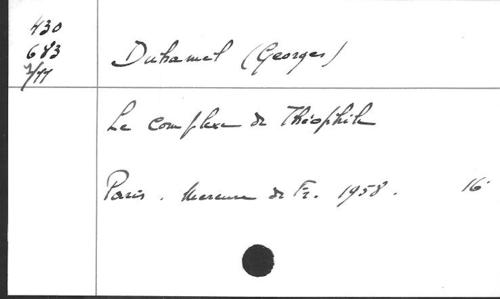 430
683
7/77
Duhamel (Georges)
Le complexe de Théophile
Paris. Mercure de Fr. 1958. 16°